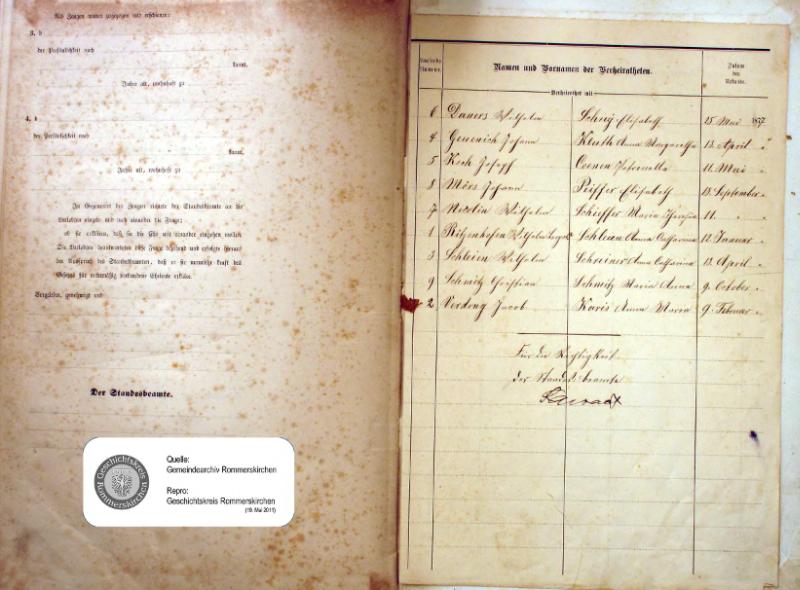 Als Zeugen waren zugezogen und erschienen:
3. d
der Persönlichkeit nach
kannt,
Jahre alt, wohnhaft zu
4. d
der Persönlichkeit nach
kannt,
Jahre alt, wohnhaft zu
In Gegenwart der Zeugen richtete der Standesbeamte an die
Verlobten einzeln und nach einander die Frage:
ob sie erklären, daß sie die Ehe mit einander eingehen wollen.
Die Verlobten beantworteten diese Frage bejahend und erfolgte hierauf
der Ausspruch des Standesbeamten, daß er sie nunmehr kraft des
Gesetzes für rechtmäßig verbundene Eheleute erkläre.
Vorgelesen, genehmigt und
Der Standesbeamte.
Geschichtskreis Rommerskirchen
Quelle:
Gemeindearchiv Rommerskirchen
Repro:
Geschichtskreis Rommerskirchen
(19. Mai 2011)
Laufende Nummer.
Namen und Vornamen der Verheiratheten.
Datum der Urkunde.
Verheirathet mit
6 Damers Wilhelm Elisabeth 15 Mai 187
4 Johann Anna Margaretha 13. April "
5 Koch Joseph Coenen Petronella 11. Mai "
8 Mörs Johann Peiffer Elisabeth 13. September "
7 Nicolin Wilhelm Schieffer Maria Theresia 11. " "
1 Wilhelm Schleun Anna Catharina 12. Januar "
3 Wilhelm Schreiner Anna Catharina 13. April "
9 Schmitz Christian Schmitz Maria Anna 9. October "
2 Jacob Anna Maria 9. Februar "
Für die Richtigkeit
der Standesbeamte